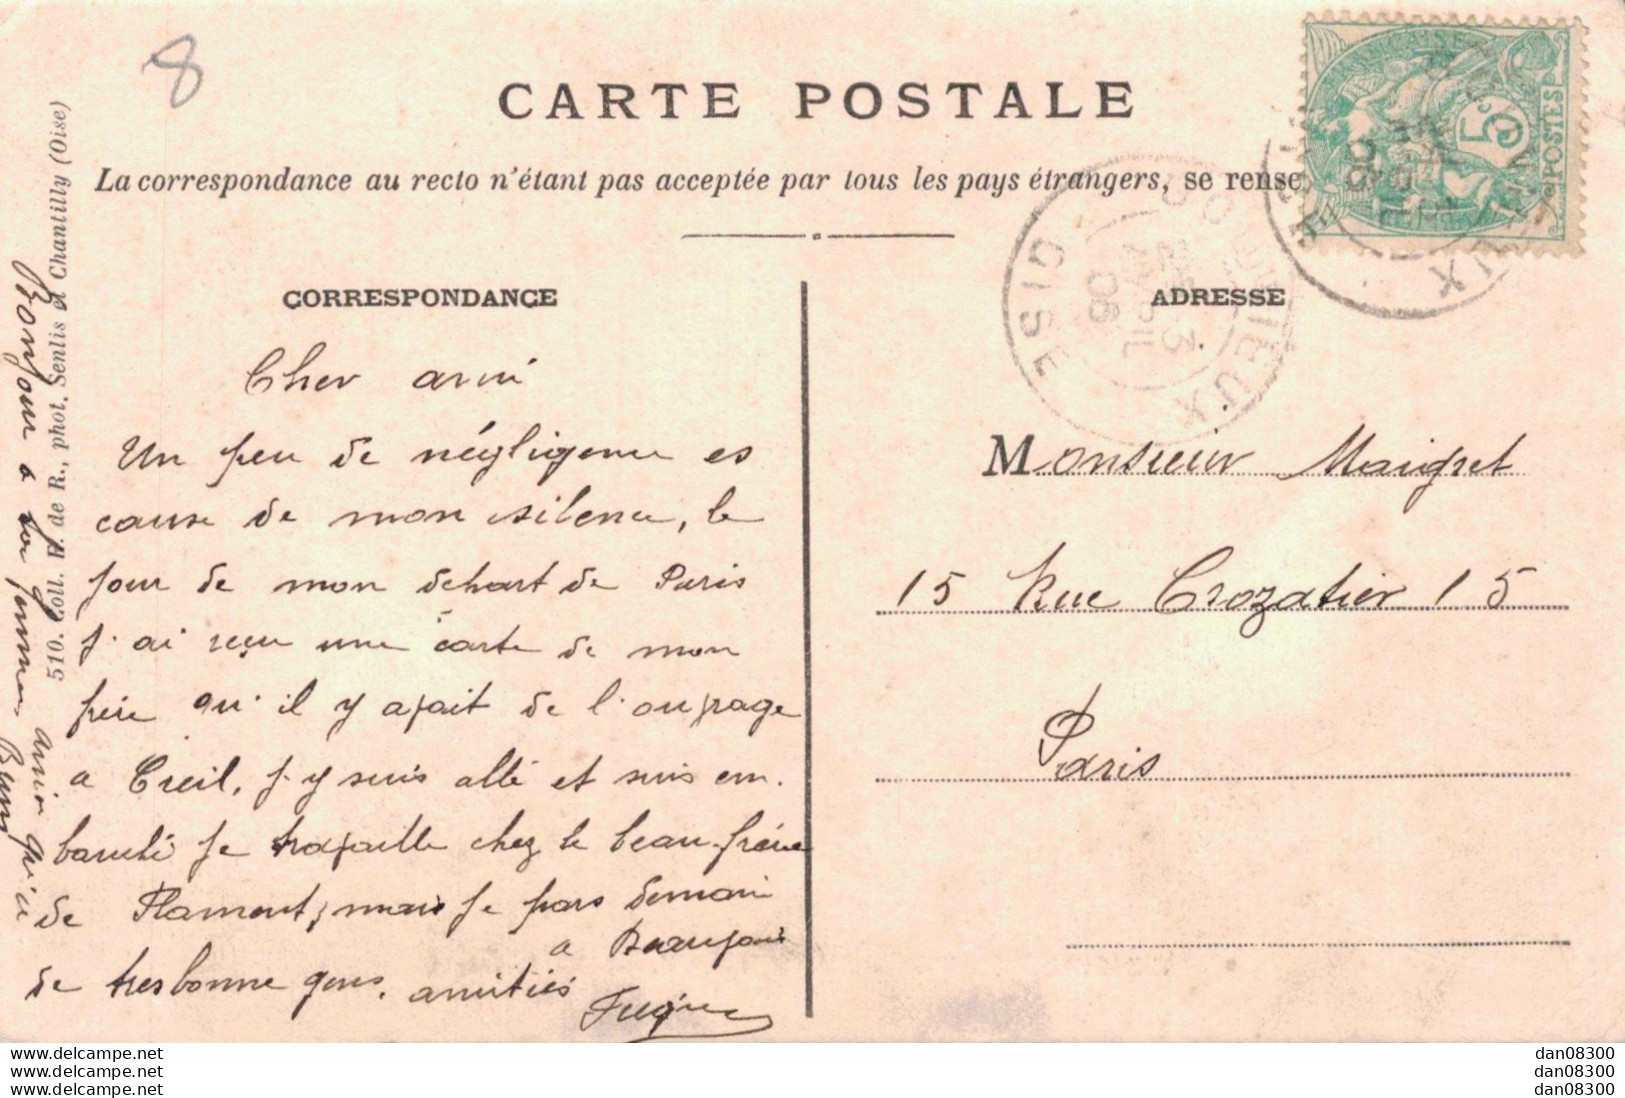 8
CARTE POSTALE
La correspondance au recto n'étant pas acceptée par tous les pays étrangers, se rense
5c
POSTES
CORRESPONDANCE
ADRESSE
OISE
13
AVRIL
06
Cher ami
Un peu de négligence es
cause de mon silence, le
jour de mon dehart de Paris
j'ai reçu une carte de mon
frère qu'il y avait de l'ouvrage
a Creil, j'y suis allé et suis em.
bauché je travaille chez le beau-frère
de Flamont, mais je pars demain
a
de tres bonne gens. amitiés
Bonjour a
ami qu'a
510. Coll. H. de R., phot. Senlis et Chantilly (Oise)
Monsieur Maigret
15 Rue Crozatier 15
Paris
www.delcampe.net
www.delcampe.net
www.delcampe.net
dan08300
dan08300
dan08300